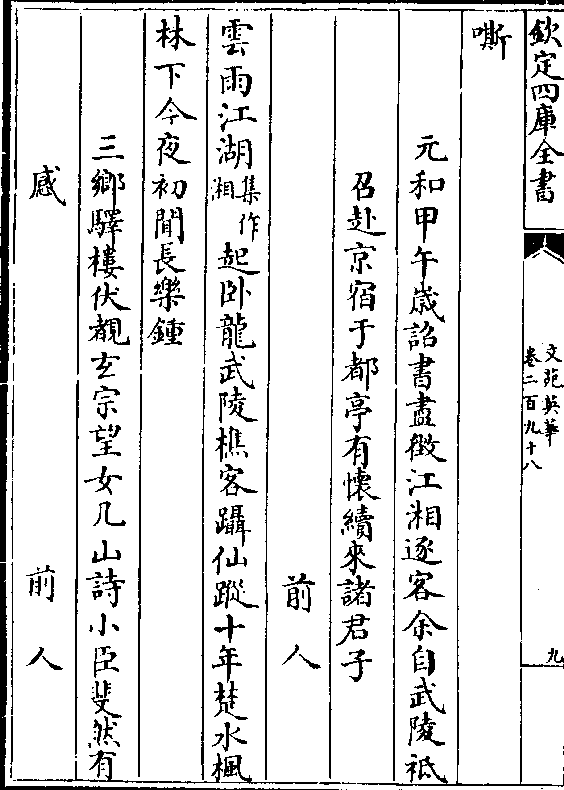 欽定四庫全書
文苑英華
卷二百九十八
九
嘶
元和甲午歲詔書盡徵江湘逐客余自武陵祗
召赴京宿于都亭有懷續來諸君子
前人
雲雨江湖集作湘起卧龍武陵樵客躡仙蹤十年楚水楓
林下今夜初聞長樂鍾
三鄉驛樓伏覩玄宗望女几山詩小臣斐然有
感
前人